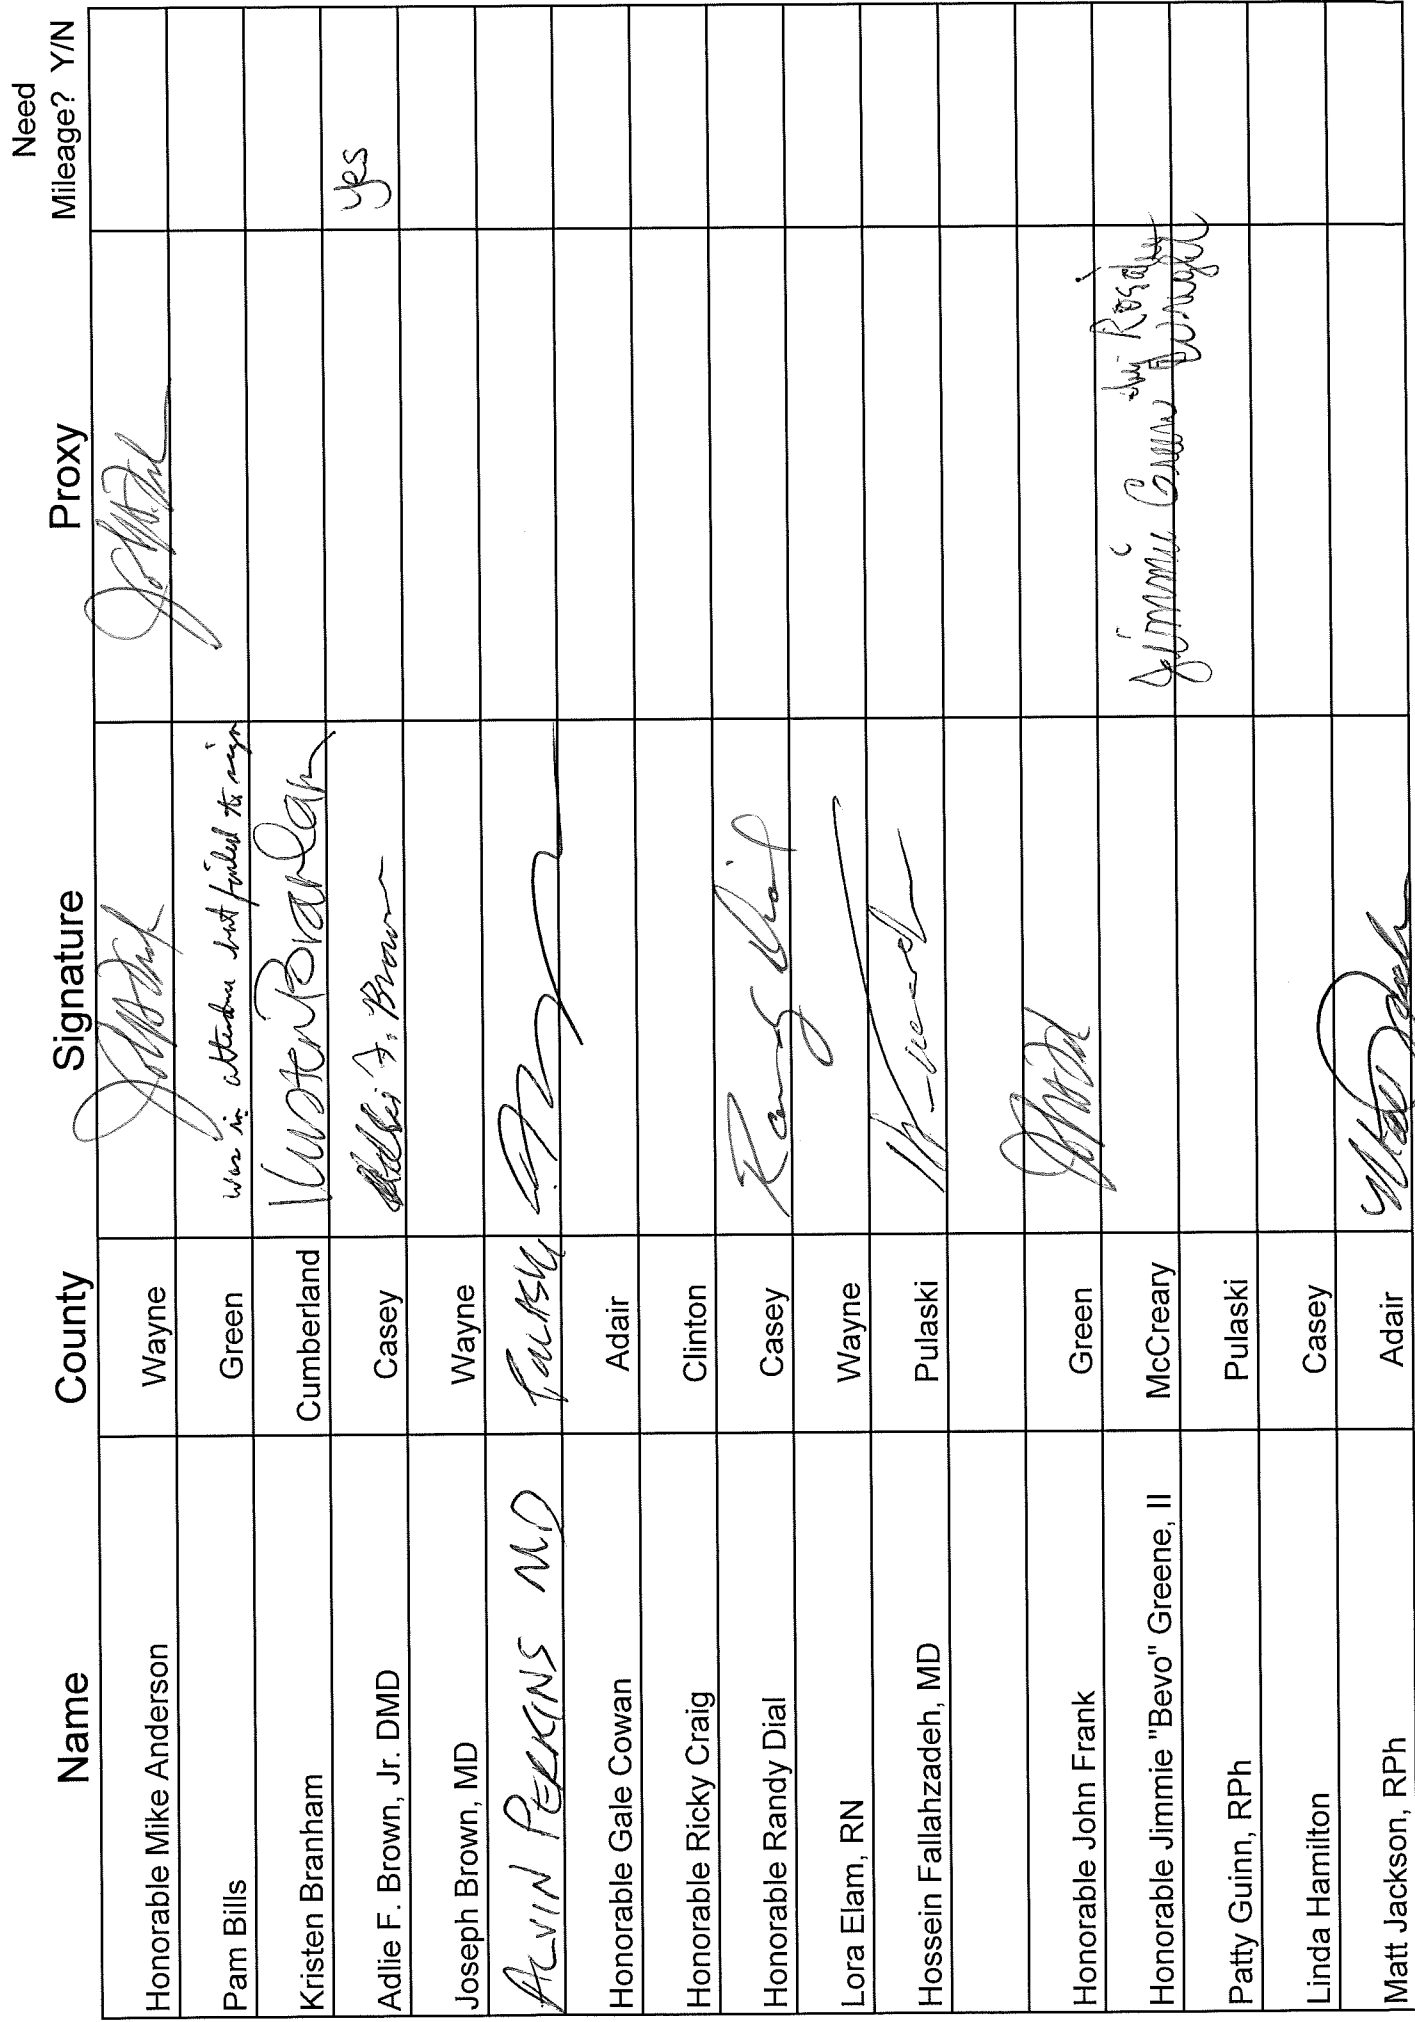 Need
Name County Signature Proxy Mileage? Y/N
Honorable Mike Anderson Wayne
Pam Bills Green was in attendance but failed to sign
Kristen Branham Cumberland Kristen Branham
Adlie F. Brown, Jr. DMD Casey Adlie F. Brown yes
Joseph Brown, MD Wayne
ALVIN PERKINS MD PULASKI
Honorable Gale Cowan Adair
Honorable Ricky Craig Clinton
Honorable Randy Dial Casey Randy Dial
Lora Elam, RN Wayne
Hossein Fallahzadeh, MD Pulaski
Honorable John Frank Green
Honorable Jimmie "Bevo" Greene, II McCreary Jimmie Greene by Rosalyn
Patty Guinn, RPh Pulaski
Linda Hamilton Casey
Matt Jackson, RPh Adair Matt Jackson